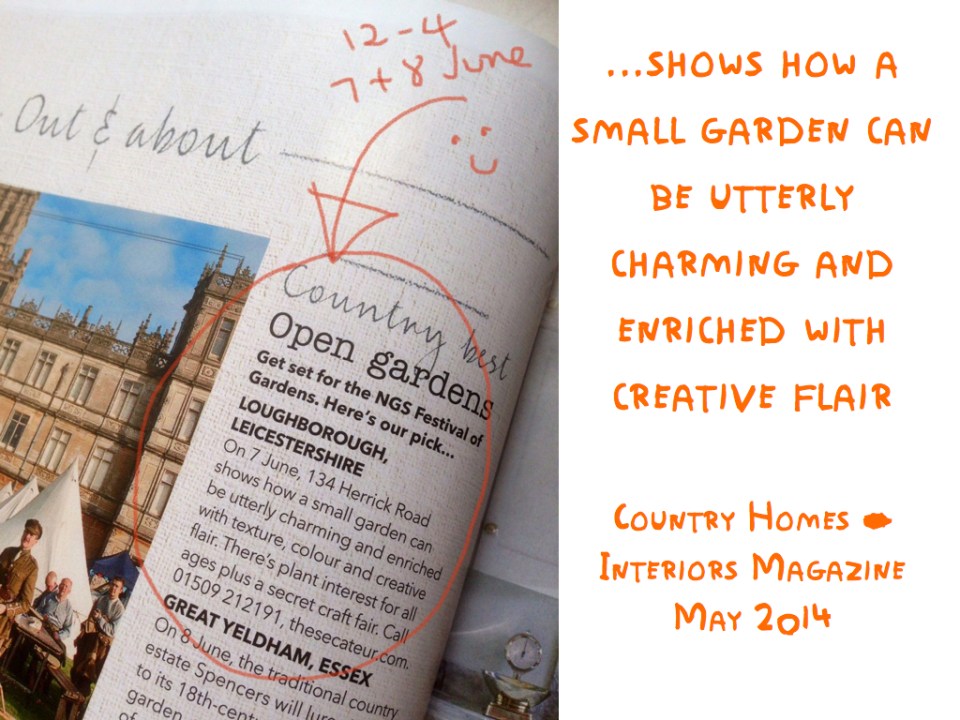 12-4
7+8 June
Out & about
Country best
Open gardens
Get set for the NGS Festival of
Gardens. Here's our pick...
LOUGHBOROUGH,
LEICESTERSHIRE
On 7 June, 134 Herrick Road
shows how a small garden can
be utterly charming and enriched
with texture, colour and creative
flair. There's plant interest for all
ages plus a secret craft fair. Call
01509 212191, thesecateur.com.
GREAT YELDHAM, ESSEX
On 8 June, the traditional country
estate Spencers will lure
to its 18th-cent
garden
of
...SHOWS HOW A
SMALL GARDEN CAN
BE UTTERLY
CHARMING AND
ENRICHED WITH
CREATIVE FLAIR
COUNTRY HOMES
INTERIORS MAGAZINE
MAY 2014